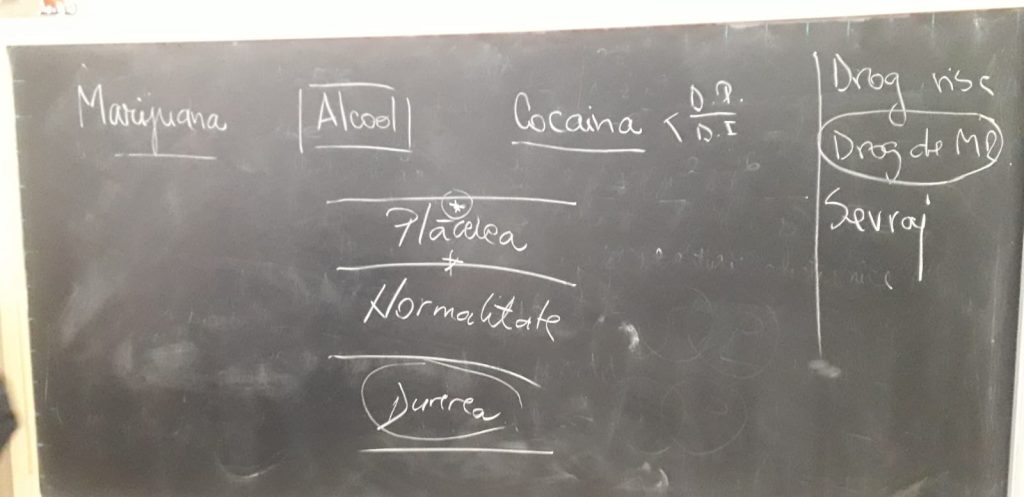 Marijuana
Alcool
Cocaina < D.P.
D.I
Plăcerea
Normalitate
Durerea
Drog risc
Drog de MR
Sevraj